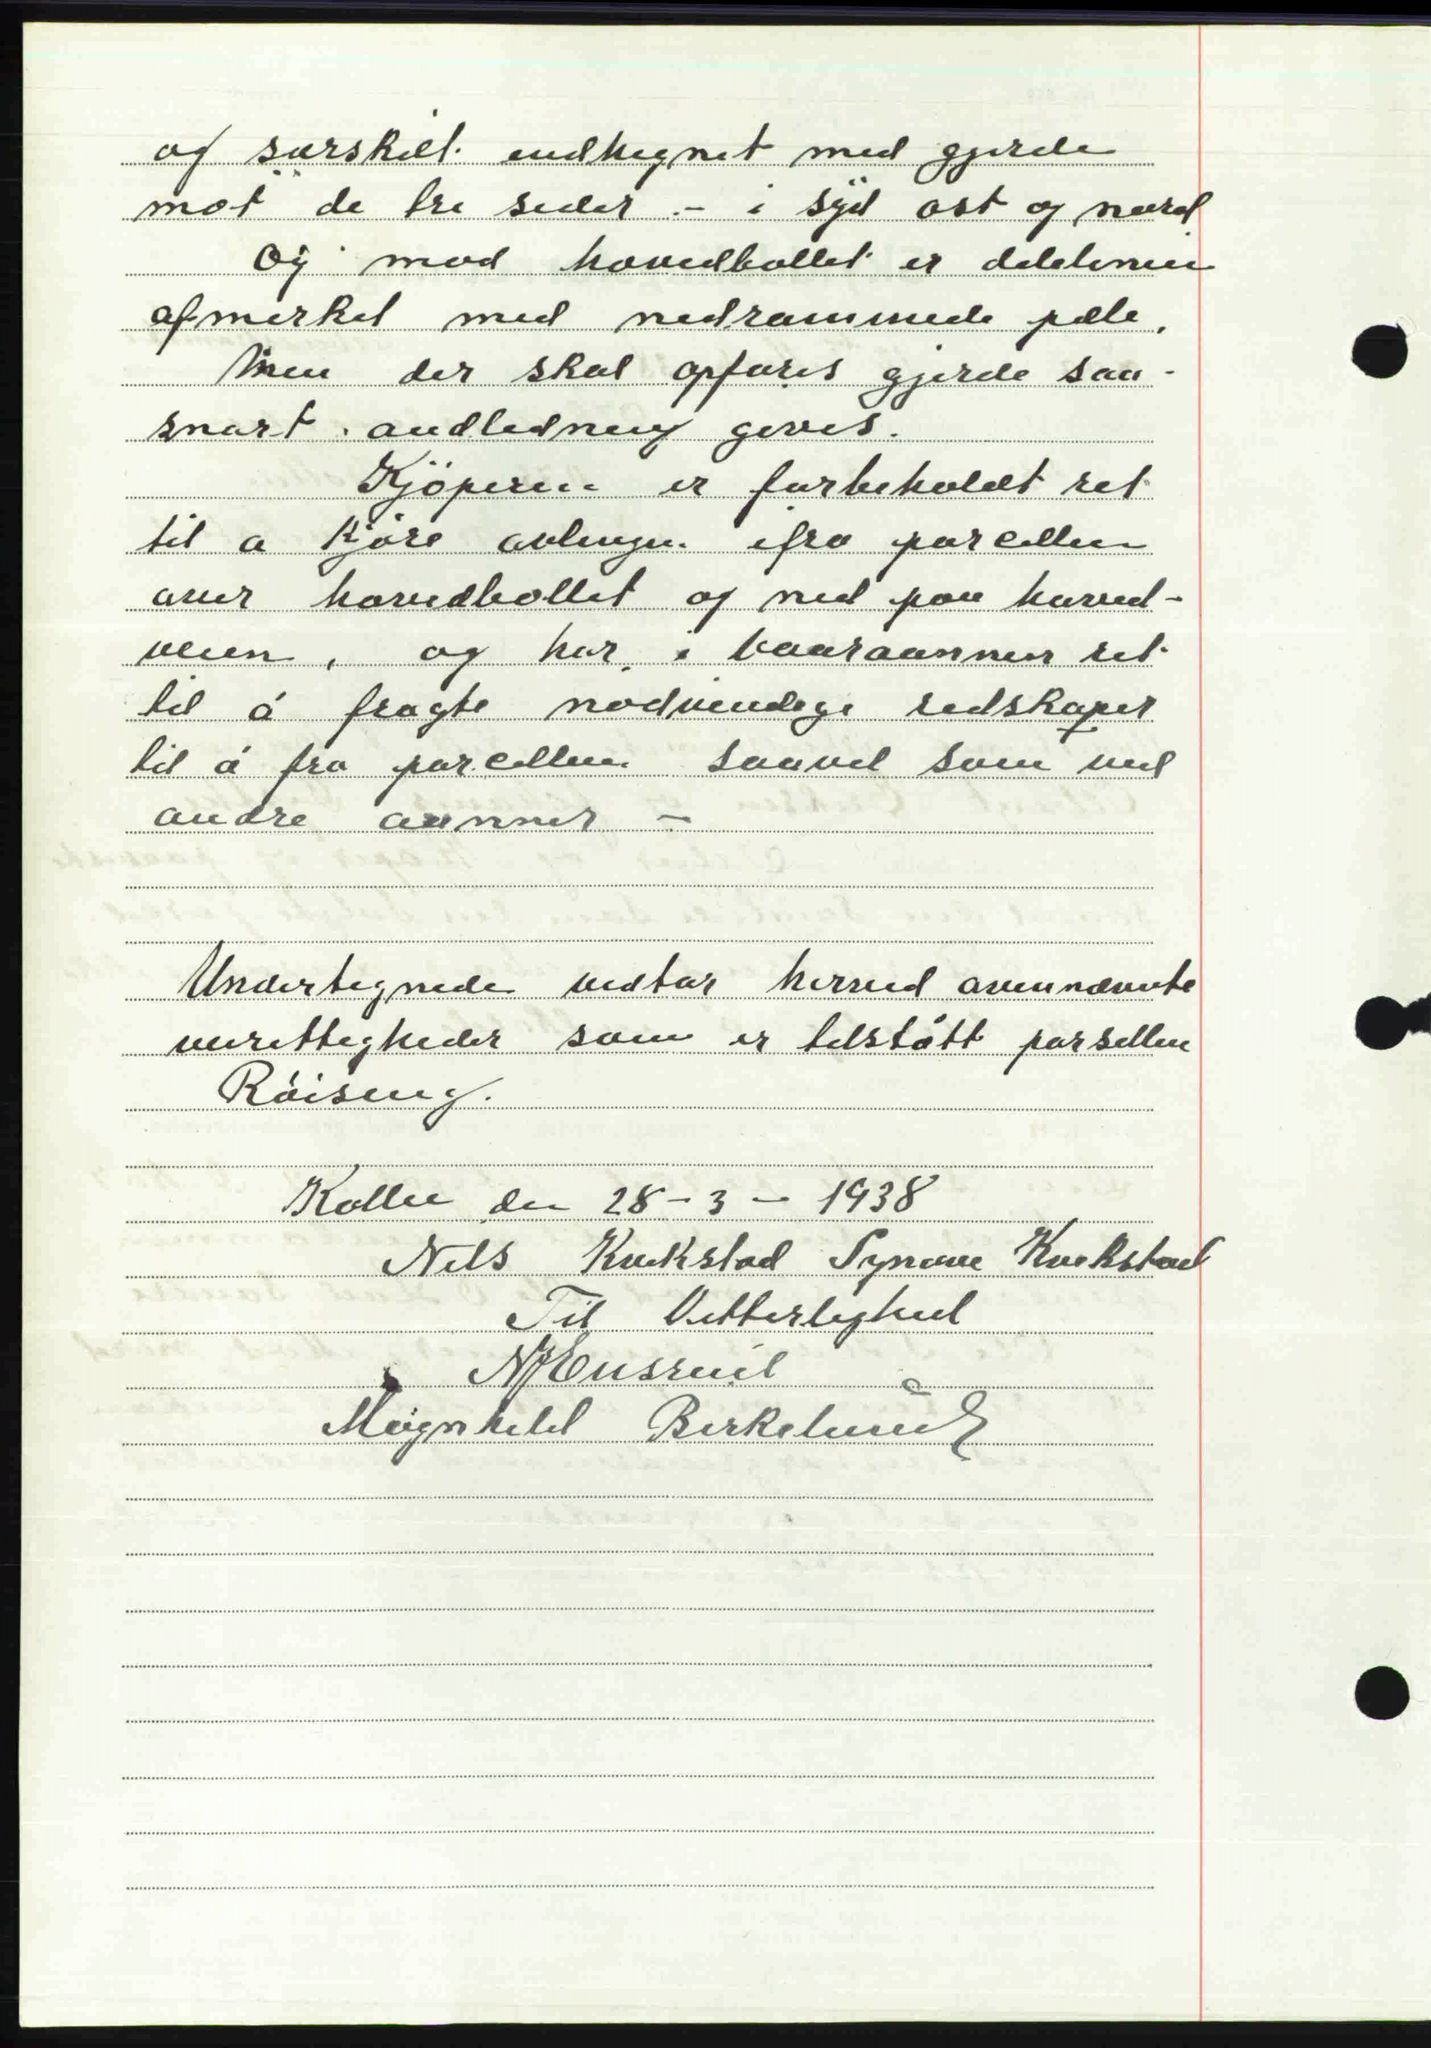 og særskilt indhegnet med gjerde
mot de tre sider. - i syd ost og nord
og mod hovedbøllet er delelinien
afmerket med nedrammede pæle.
Men der skal opføres gjerde saa-
snart andledning gives.
Kjöperen er forbeholdt ret
til a kjøre avlingen ifra parcellen
over hovedbøllet og ned paa hoved-
veien, og har i vaaraannen ret
til å fragte nødvendige redskaper
til å fra parcellen saavel som ved
andre aanner -
Undertegnede vedtar herved ovennævnte
veirettigheder som er tilstått parsellen
Røising.
Kolbu den 28-3-1938
Nils Kvikstad Synøve Kvikstad
Til Vitterlighed
Magnhild Birkelund